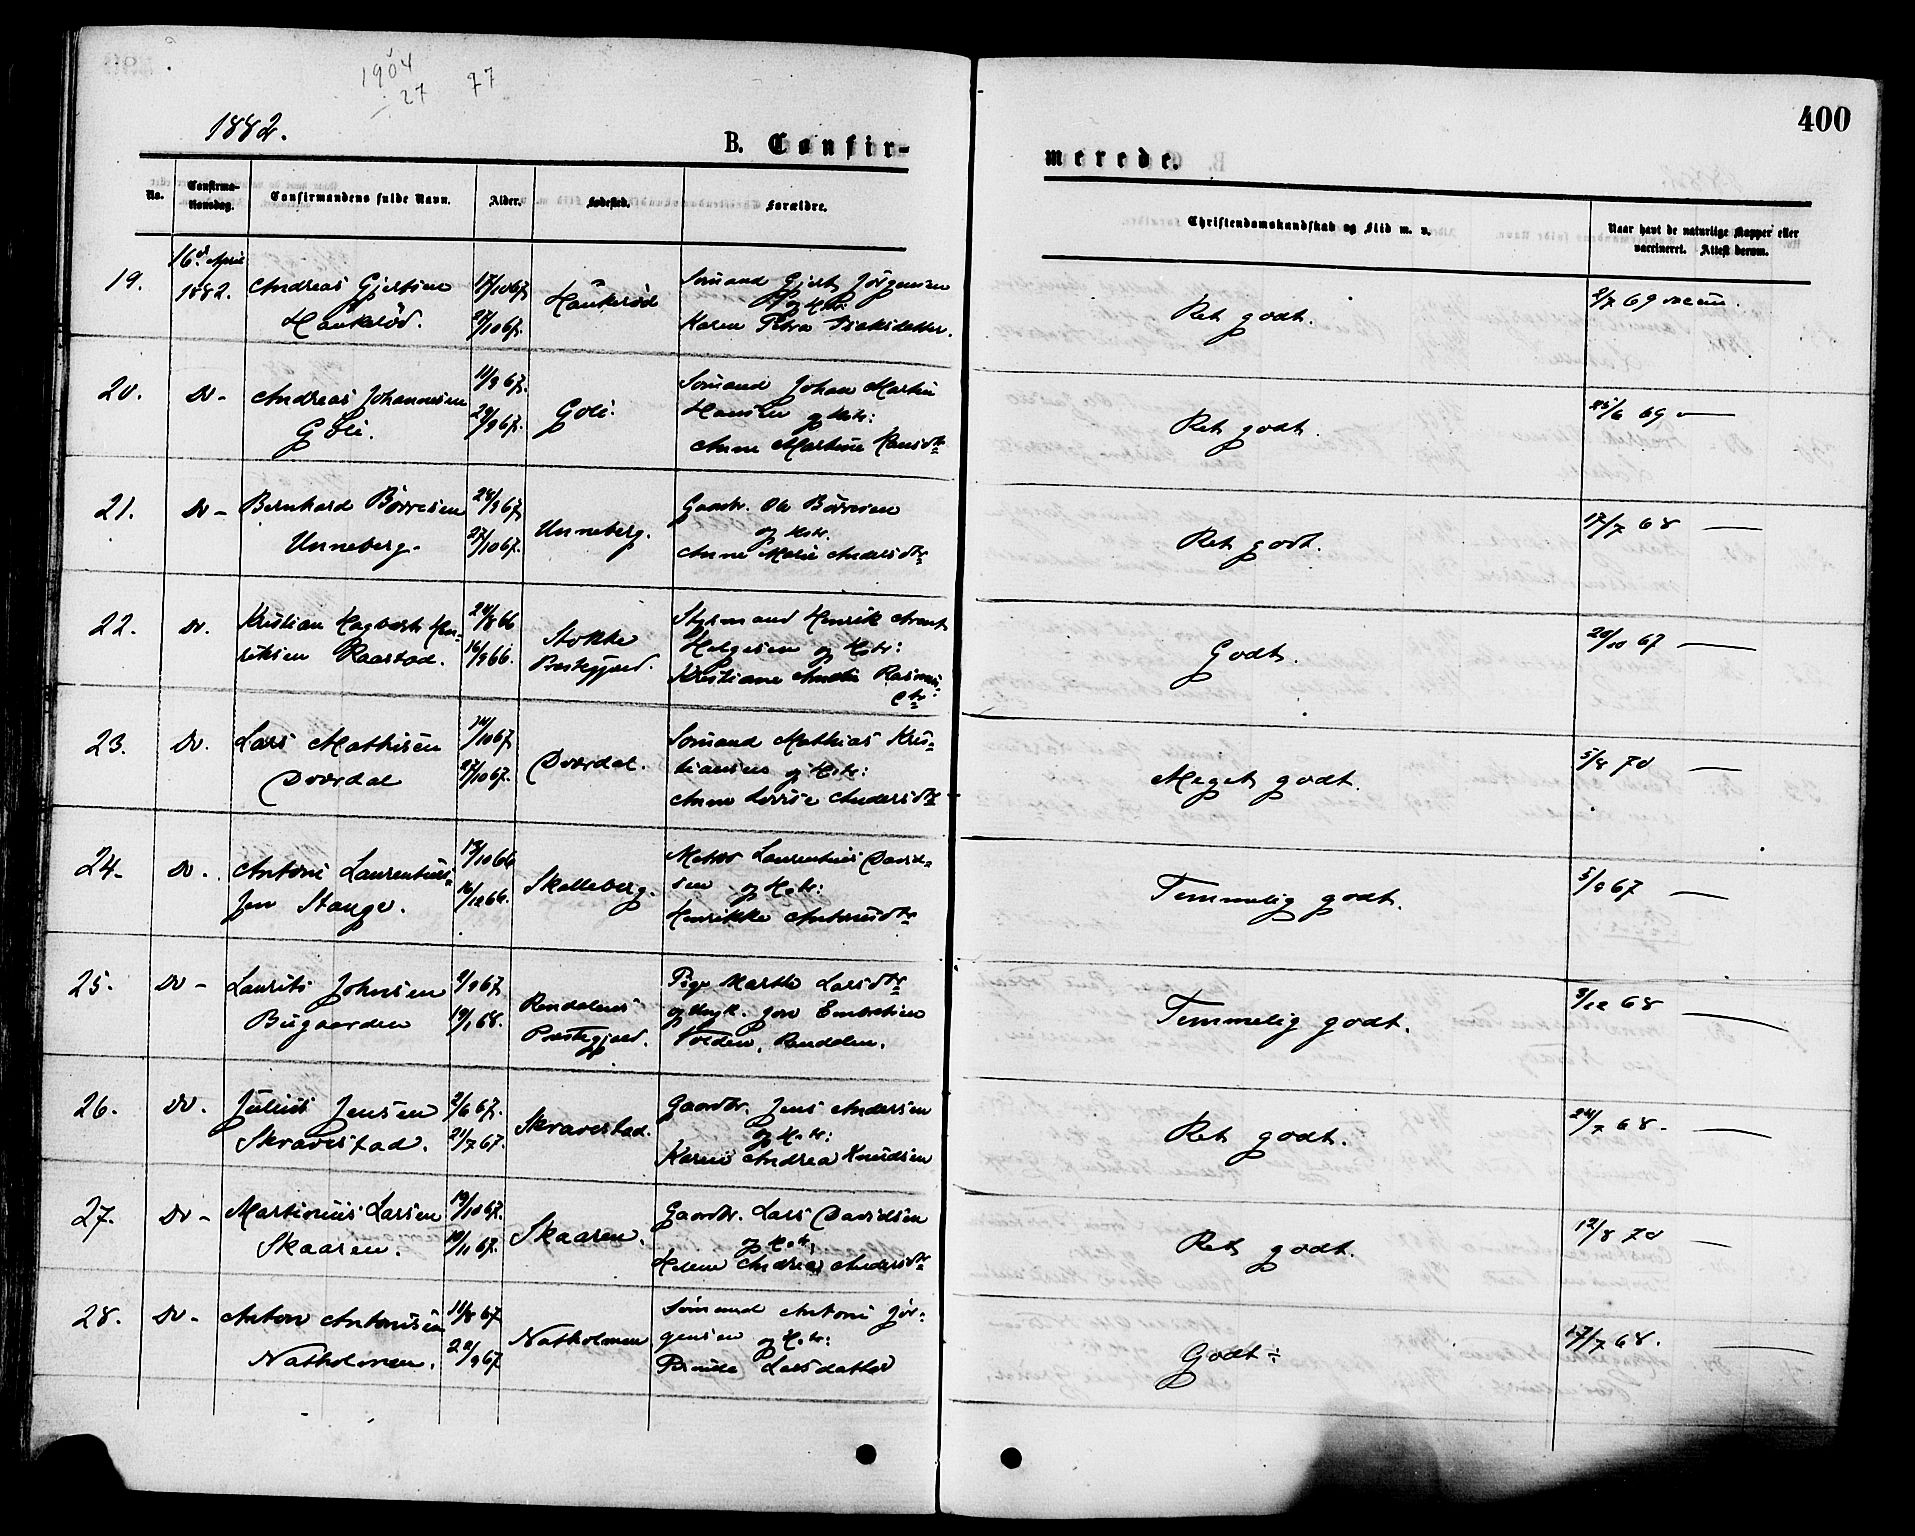 1904
27 77
1882.
400
B. Confirmerede.
No. Confirmationsdag. Confirmandens fulde Navn. Alder. Fødested. Forældre. Christendomskundskab og Flid m. v. Naar havt de naturlige Kopper eller vaccineret. Attest derom.
19. 16de April 1882. Andreas Gjertsen Haukerød. 17/10 67. 27/10 67. Haukerød Sømand Gjert Jørgensen og Hstr: Karen Petra Isaksdatter. Ret godt. 2/7 69 vaccin.
20. Do - Andreas Johannesen Gøli. 11/9 67. 29/9 67. Gøli. Sømand Johan Martin Hansen og Hstr: Anne Martine Hansdtr Ret godt. 25/6 69 —
21. Do - Bernhard Børresen Unneberg. 24/9 67. 27/10 67. Unneberg. Gaardbr. Ole Børresen og Hstr. Anne Marie Andersdtr Ret godt. 17/7 68 —
22. Do. Kristian Hagbarth Henriksen Raastad. 24/8 66 16/9 66. Stokke Præstegjæld. Styrmand Henrik Arent Helgesen og Hstr: Kristiane Amalie Rasmusdtr Godt. 20/10 67 —
23. Do. Lars Mathisen Dverdal 14/10 67. 27/10 67. Dverdal. Sømand Mathias Kristiansen og Hstr: Anne Lovise Andersdtr Meget godt. 5/8 70 —
24. Do. Antoni Laurentiussen Stange. 19/10 66 16/12 66. Skelleberg. Matros Laurentius Davidsen og Hstr: Henrikke Antonisdtr Temmelig godt. 5/9 67 —
25. Do - Laurits Johnsen Bugaarden 9/9 67 19/1 68. Rendalens Præstegjæld. Pige Marthe Larsdtr og Ungk. Jon Embretsen Volden, Rendalen. Temmelig godt. 3/12 68 —
26. Do. Julius Jensen Skravestad. 2/6 67. 21/7 67. Skravestad. Gaardbr. Jens Andersen og Hstr: Karen Andrea Knudsen Ret godt. 24/7 68. —
27. Do - Martinius Larsen Skaaren. 19/10 67. 10/11 67. Skaaren. Gaardbr. Lars Davidsen og Hstr. Helene Andrea Andersdtr Ret godt. 12/8 70 —
28. Do - Anton Antonisen Natholmen. 11/8 67 22/9 67 Natholmen Sømand Antoni Jørgensen og Hstr: Larsdatter Godt ÷ 17/7 68. —